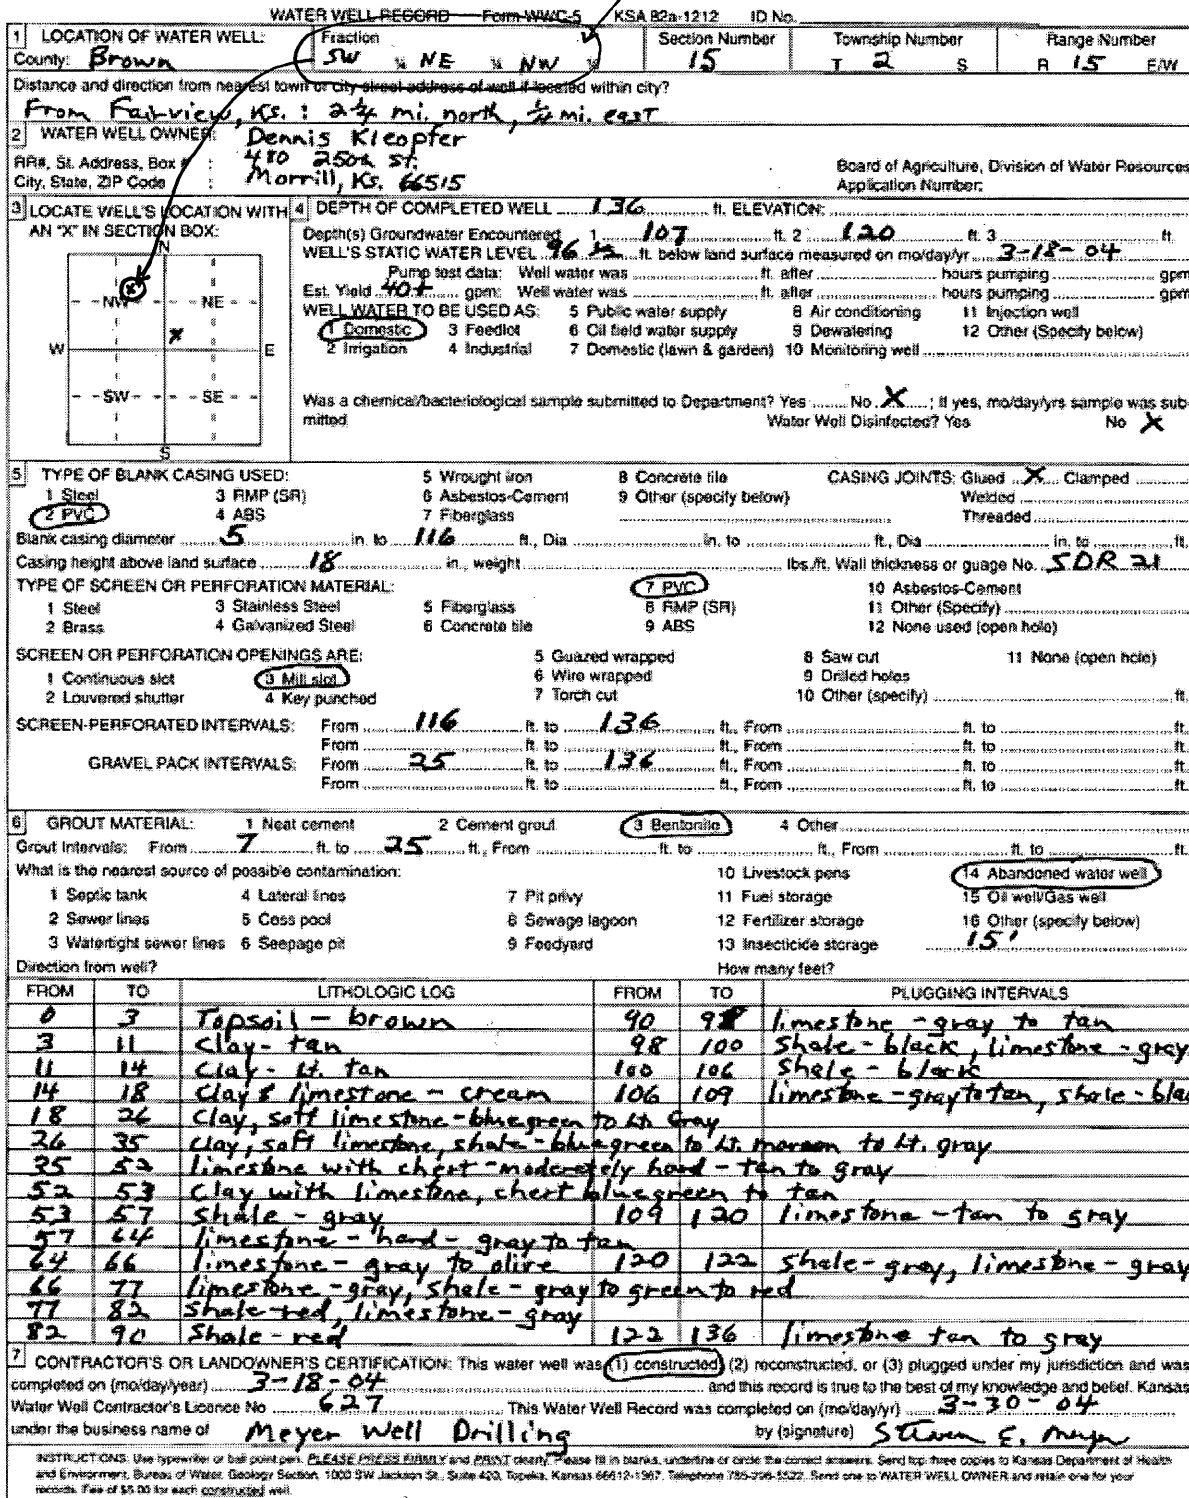 WATER WELL RECORD Form WWC-5 KSA 82a-1212 ID No.
1 LOCATION OF WATER WELL: Fraction Section Number Township Number Range Number
County: Brown SW ¼ NE ¼ NW ¼ 15 T 2 S R 15 E/W
Distance and direction from nearest town or city street address of well if located within city?
From Fairview, Ks. : 2 ¼ mi. north, ¼ mi. east
2 WATER WELL OWNER: Dennis Kleopfer
RR#, St. Address, Box # : 480 250th St. Board of Agriculture, Division of Water Resources
City, State, ZIP Code : Morrill, Ks. 66515 Application Number:
3 LOCATE WELL'S LOCATION WITH AN "X" IN SECTION BOX:
N
NW NE
X
X
W E
SW SE
S
4 DEPTH OF COMPLETED WELL 136 ft. ELEVATION:
Depth(s) Groundwater Encountered 1 107 ft. 2 120 ft. 3 ft.
WELL'S STATIC WATER LEVEL 96 ½ ft. below land surface measured on mo/day/yr 3-18-04
Pump test data: Well water was ft. after hours pumping gpm
Est. Yield 40+ gpm: Well water was ft. after hours pumping gpm
WELL WATER TO BE USED AS: 5 Public water supply 8 Air conditioning 11 Injection well
1 Domestic 3 Feedlot 6 Oil field water supply 9 Dewatering 12 Other (Specify below)
2 Irrigation 4 Industrial 7 Domestic (lawn & garden) 10 Monitoring well
Was a chemical/bacteriological sample submitted to Department? Yes No X ; If yes, mo/day/yrs sample was sub-
mitted Water Well Disinfected? Yes No X
5 TYPE OF BLANK CASING USED: 5 Wrought iron 8 Concrete tile CASING JOINTS: Glued X Clamped
1 Steel 3 RMP (SR) 6 Asbestos-Cement 9 Other (specify below) Welded
2 PVC 4 ABS 7 Fiberglass Threaded
Blank casing diameter 5 in. to 116 ft., Dia in. to ft., Dia in. to ft.
Casing height above land surface 18 in., weight lbs./ft. Wall thickness or guage No. SDR 21
TYPE OF SCREEN OR PERFORATION MATERIAL: 7 PVC 10 Asbestos-Cement
1 Steel 3 Stainless Steel 5 Fiberglass 8 RMP (SR) 11 Other (Specify)
2 Brass 4 Galvanized Steel 6 Concrete tile 9 ABS 12 None used (open hole)
SCREEN OR PERFORATION OPENINGS ARE: 5 Guazed wrapped 8 Saw cut 11 None (open hole)
1 Continuous slot 3 Mill slot 6 Wire wrapped 9 Drilled holes
2 Louvered shutter 4 Key punched 7 Torch cut 10 Other (specify) ft.
SCREEN-PERFORATED INTERVALS: From 116 ft. to 136 ft., From ft. to ft.
From ft. to ft., From ft. to ft.
GRAVEL PACK INTERVALS: From 25 ft. to 136 ft., From ft. to ft.
From ft. to ft., From ft. to ft.
6 GROUT MATERIAL: 1 Neat cement 2 Cement grout 3 Bentonite 4 Other
Grout Intervals: From 7 ft. to 25 ft., From ft. to ft., From ft. to ft.
What is the nearest source of possible contamination: 10 Livestock pens 14 Abandoned water well
1 Septic tank 4 Lateral lines 7 Pit privy 11 Fuel storage 15 Oil well/Gas well
2 Sewer lines 5 Cess pool 8 Sewage lagoon 12 Fertilizer storage 16 Other (specify below)
3 Watertight sewer lines 6 Seepage pit 9 Feedyard 13 Insecticide storage 15'
Direction from well? How many feet?
FROM TO LITHOLOGIC LOG FROM TO PLUGGING INTERVALS
0 3 Topsoil - brown 90 98 limestone - gray to tan
3 11 Clay - tan 98 100 Shale - black, limestone - gray
11 14 Clay - Lt. tan 100 106 Shale - black
14 18 Clay & limestone - cream 106 109 limestone - gray to tan, shale - blac
18 26 Clay, soft limestone - bluegreen to Lt. Gray
26 35 Clay, soft limestone, shale - bluegreen to Lt. maroon to Lt. gray
35 52 limestone with chert - moderately hard - tan to gray
52 53 Clay with limestone, chert bluegreen to tan
53 57 Shale - gray 109 120 limestone - tan to gray
57 64 limestone - hard - gray to tan
64 66 limestone - gray to olive 120 122 Shale - gray, limestone - gray
66 77 limestone - gray, shale - gray to green to red
77 82 Shale - red, limestone - gray
82 90 Shale - red 122 136 limestone tan to gray
7 CONTRACTOR'S OR LANDOWNER'S CERTIFICATION: This water well was (1) constructed, (2) reconstructed, or (3) plugged under my jurisdiction and was
completed on (mo/day/year) 3-18-04 and this record is true to the best of my knowledge and belief. Kansas
Water Well Contractor's Licence No 627 This Water Well Record was completed on (mo/day/yr) 3-30-04
under the business name of Meyer Well Drilling by (signature) Steven E. Meyer
INSTRUCTIONS: Use typewriter or ball point pen. PLEASE PRESS FIRMLY and PRINT clearly. Please fill in blanks, underline or circle the correct answers. Send top three copies to Kansas Department of Health
and Environment, Bureau of Water, Geology Section, 1000 SW Jackson St., Suite 420, Topeka, Kansas 66612-1367. Telephone 785-296-5522. Send one to WATER WELL OWNER and retain one for your
records. Fee of $5.00 for each constructed well.